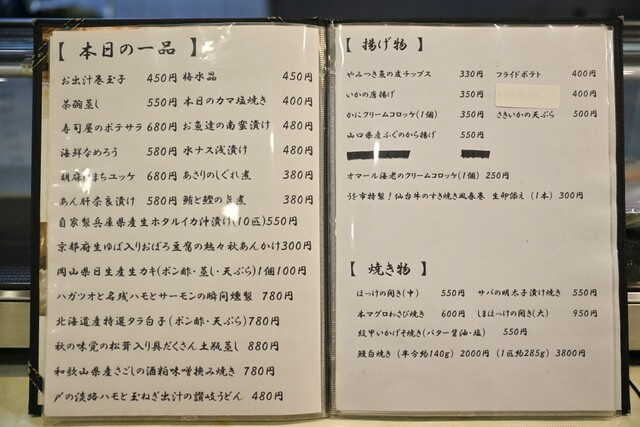 【本日の一品】
お出汁巻玉子 450円 梅水晶 450円
茶碗蒸し 550円 本日のカマ塩焼き 400円
寿司屋のポテサラ 680円 お魚達の南蛮漬け 480円
海鮮なめろう 580円 水ナス浅漬け 480円
胡麻はまちユッケ 680円 あさりのしぐれ煮 380円
あん肝奈良漬け 580円 鮪と鰹の旨煮 380円
自家製兵庫県産生ホタルイカ沖漬け(10匹)550円
京都府生ゆば入りおぼろ豆腐の熱々秋あんかけ300円
岡山県日生産生カキ(ポン酢・蒸し・天ぷら)1個100円
ハガツオと名残ハモとサーモンの瞬間燻製 780円
北海道産特選タラ白子(ポン酢・天ぷら)780円
秋の味覚の松茸入り具だくさん土瓶蒸し 880円
和歌山県産さごしの酒粕味噌挟み焼き 780円
〆の淡路ハモと玉ねぎ出汁の讃岐うどん 480円
【揚げ物】
やみつき魚の皮チップス 330円 フライドポテト 400円
いかの唐揚げ 350円 400円
かにクリームコロッケ(1個) 350円 さきいかの天ぷら 500円
山口県産ふぐのから揚げ 550円
オマール海老のクリームコロッケ(1個) 250円
うを市特製!仙台牛のすき焼き風春巻 生卵添え(1本)300円
【焼き物】
ほっけの開き(中) 550円 サバの明太子漬け焼き 550円
本マグロわさび焼き 600円 しまほっけの開き(大) 950円
紋甲いかげそ焼き(バター醤油・塩) 550円
鰻白焼き(半分約140g)2000円(1匹約285g)3800円